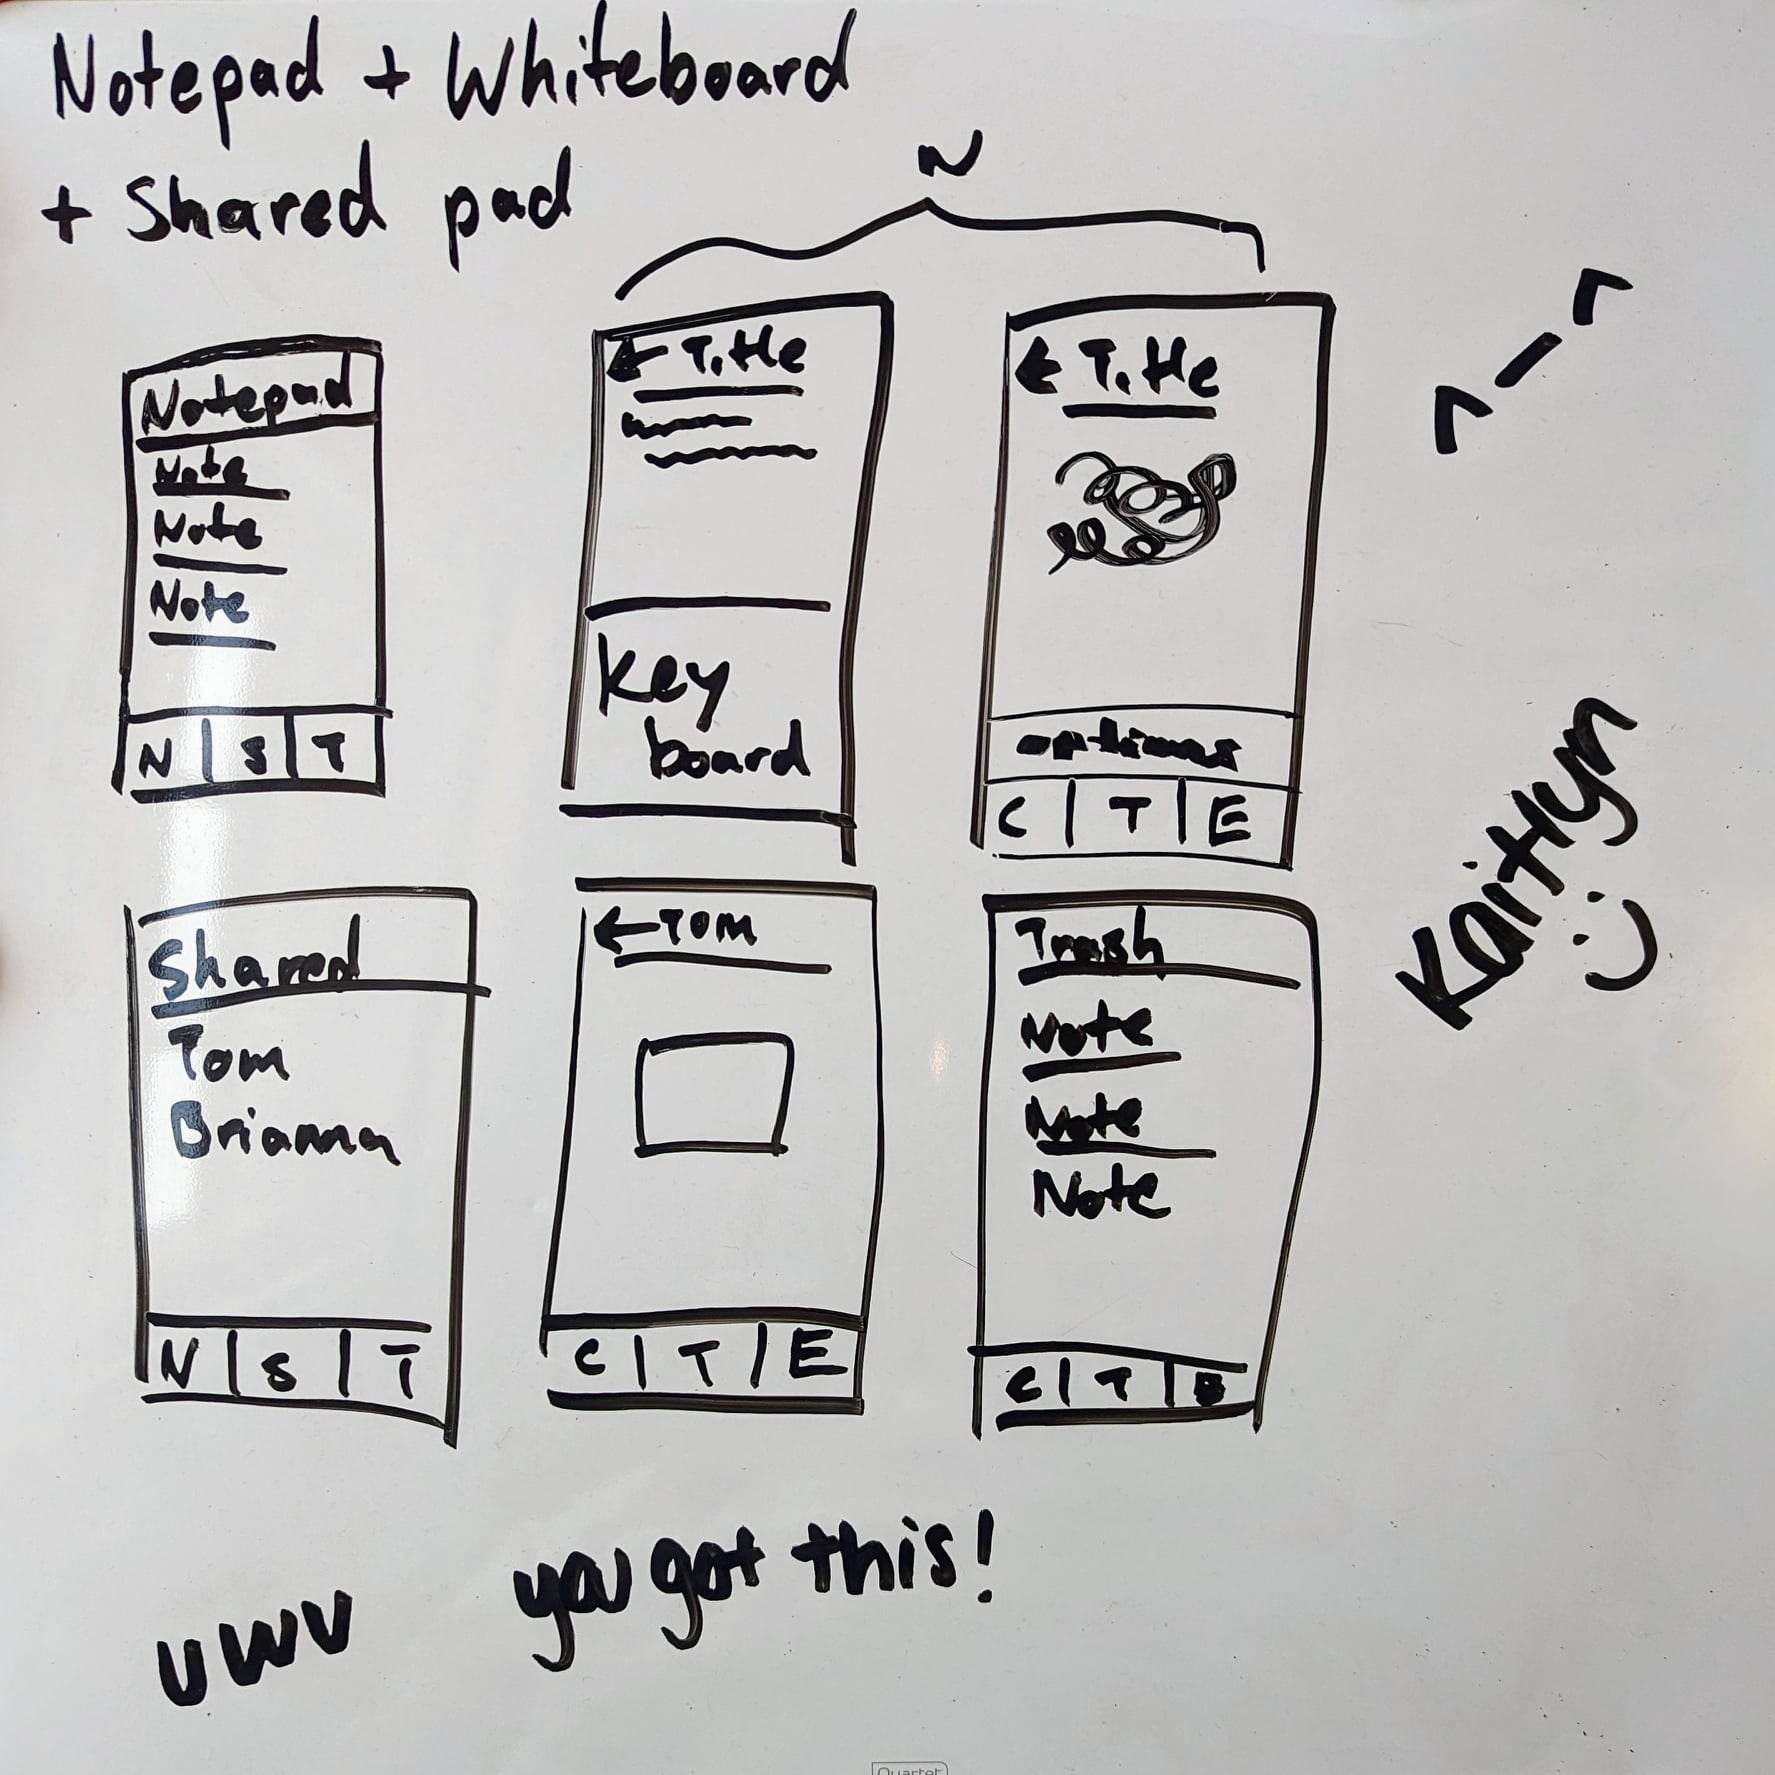 Notepad + Whiteboard
+ Shared pad
N
Notepad
Note
Note
Note
N | S | T
← Title
Key
board
← Title
options
C | T | E
^-^
Shared
Tom
Brianna
N | S | T
← Tom
C | T | E
Trash
Note
Note
Note
C | T | E
Kaitlyn :)
UWU
you got this!
Quartet